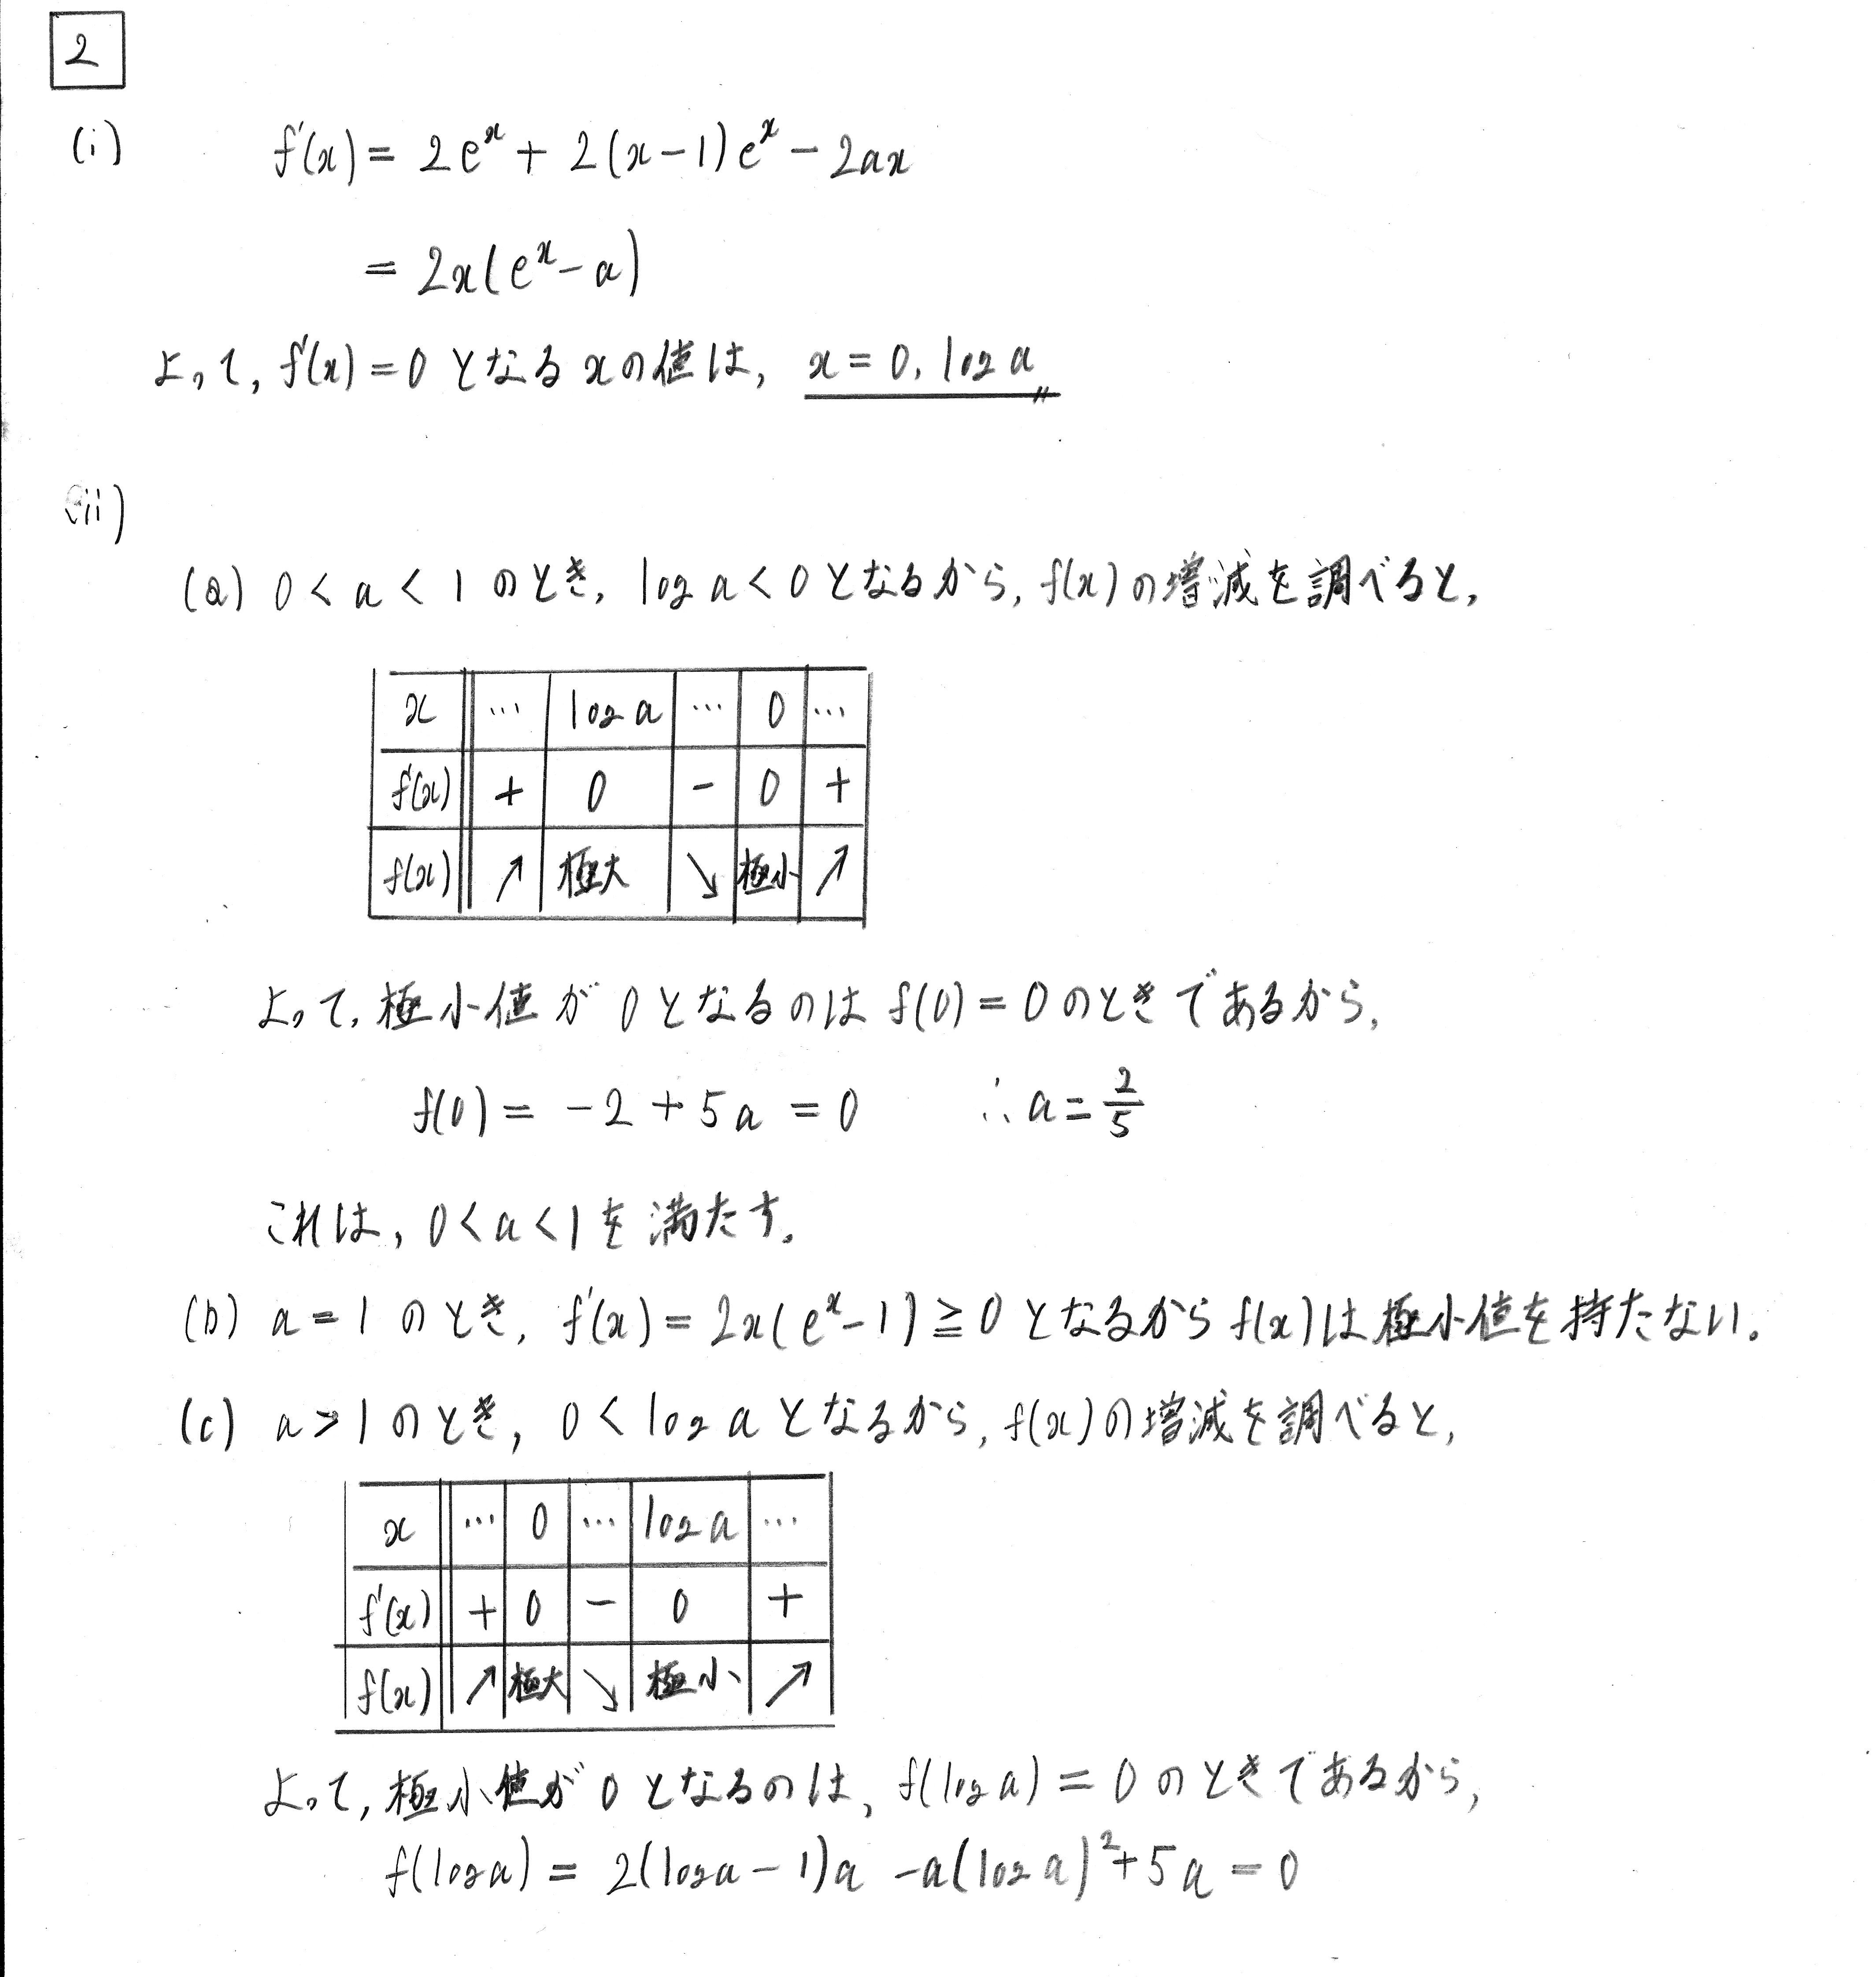 2
(i) f'(x) = 2e^x + 2(x-1)e^x - 2ax
= 2x(e^x - a)
よって, f'(x) = 0 となる x の値は, x = 0, log a
(ii)
(a) 0 < a < 1 のとき, log a < 0 となるから, f(x) の増減を調べると,
x … log a … 0 …
f'(x) + 0 - 0 +
f(x) ↗ 極大 ↘ 極小 ↗
よって, 極小値が 0 となるのは f(0) = 0 のときであるから,
f(0) = -2 + 5a = 0 ∴ a = 2/5
これは, 0 < a < 1 を満たす.
(b) a = 1 のとき, f'(x) = 2x(e^x - 1) ≧ 0 となるから f(x) は極小値を持たない.
(c) a > 1 のとき, 0 < log a となるから, f(x) の増減を調べると,
x … 0 … log a …
f'(x) + 0 - 0 +
f(x) ↗ 極大 ↘ 極小 ↗
よって, 極小値が 0 となるのは, f(log a) = 0 のときであるから,
f(log a) = 2(log a - 1)a - a(log a)^2 + 5a = 0